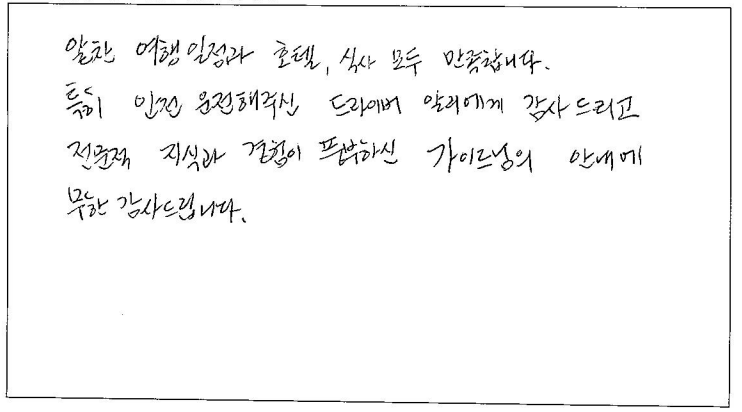 알찬 여행일정과 호텔, 식사 모두 만족합니다.
특히 안전 운전해주신 드라이버 알리에게 감사드리고
전문적 지식과 경험이 풍부하신 가이드님의 안내에
무한 감사드립니다.